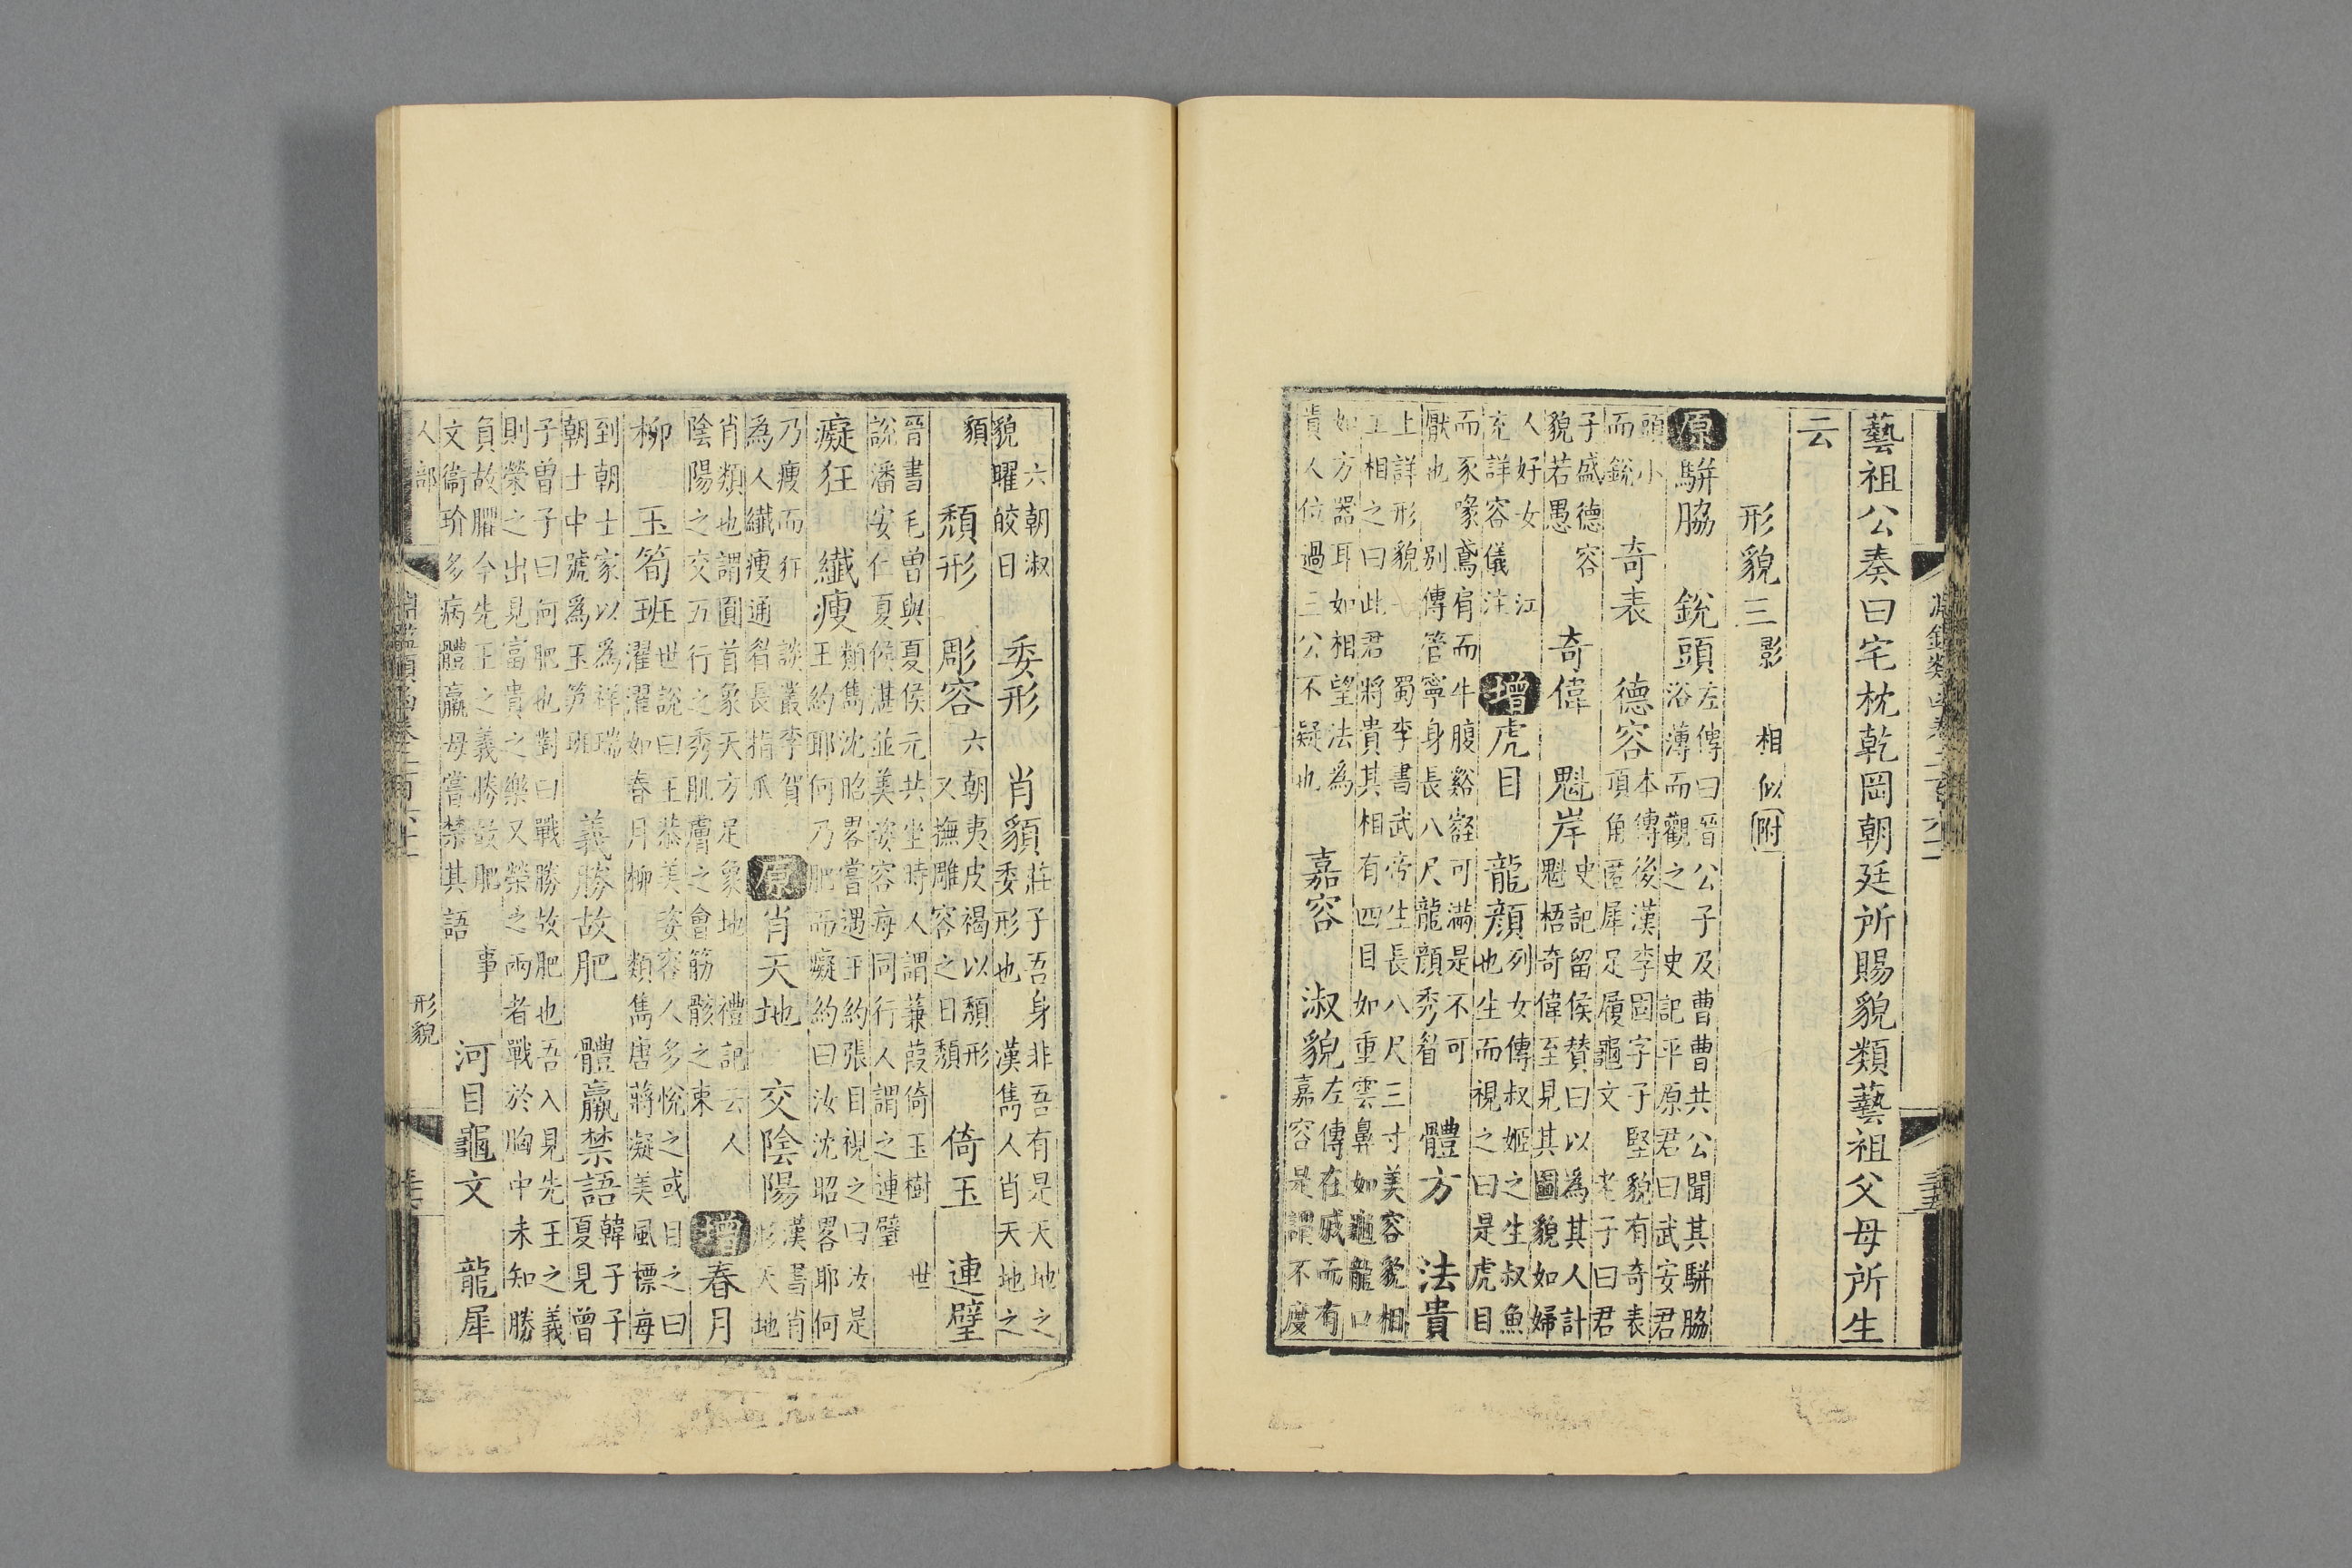 藝祖公奏曰宅枕乾岡朝廷所賜貌類藝祖父母所生
云
形貌三影 相似附
原駢脇 銳頭左傳曰晉公子及曹曹共公聞其駢脇
浴薄而觀之 史記平原君曰武安君
頭小
而銳 奇表 德容本傳後漢李固字子堅貌有奇表
項角匿犀足履龜文 老子曰君
子盛德容
貌若愚 奇偉 魁岸史記留侯贊曰以為其人計
魁梧奇偉至見其圖貌如婦
人好女 江
充詳容儀注 增虎目 龍顔列女傳叔姬之生叔魚
也生而視之曰是虎目
而豕喙鳶肩而牛腹谿壑可滿是不可
厭也 别傳管寧身長八尺龍顔秀眉 體方 法貴
上詳形貌一 蜀李書武帝生長八尺三寸美容貌相
工相之曰此君將貴其相有四目如重雲鼻如龜龍口
如方器耳如相望法為
貴人位過三公不疑也 嘉容 淑貌左傳在戚而有
嘉容是謂不度
六朝淑
貌曜皎日 委形 肖貌莊子吾身非吾有是天地之
委形也 漢雋人肖天地之
貌 頹形 彫容六朝夷皮褐以頹形
又撫雕容之日頹 倚玉 連璧
晉書毛曾與夏侯元共坐時人謂蒹葭倚玉樹 世
說潘安仁夏侯湛並美姿容每同行人謂之連璧
癡狂 纖瘦類雋沈昭畧嘗遇王約張目視之曰汝是
王約耶何乃肥而癡約曰汝沈昭畧耶何
乃瘦而狂 談叢李賀
為人纖瘦通眉長指爪 原肖天地 交陰陽漢書肖
形天地
肖類也謂圓首象天方足象地 禮記云人
陰陽之交五行之秀肌膚之會筋骸之束 增春月
柳 玉筍班世說曰王恭美姿容人多悅之或目之曰
濯濯如春月柳 類雋唐蔣凝美風標每
到朝士家以為祥瑞
朝士中號為玉筍班 義勝故肥 體羸禁語韓子子
夏見曾
子曾子曰何肥也對曰戰勝故肥也吾入見先王之義
則榮之出見富貴之樂又榮之兩者戰於胸中未知勝
負故臞今先王之義勝故肥 事
文衞玠多病體羸母嘗禁其語 河目龜文 龍犀
人部
形貌